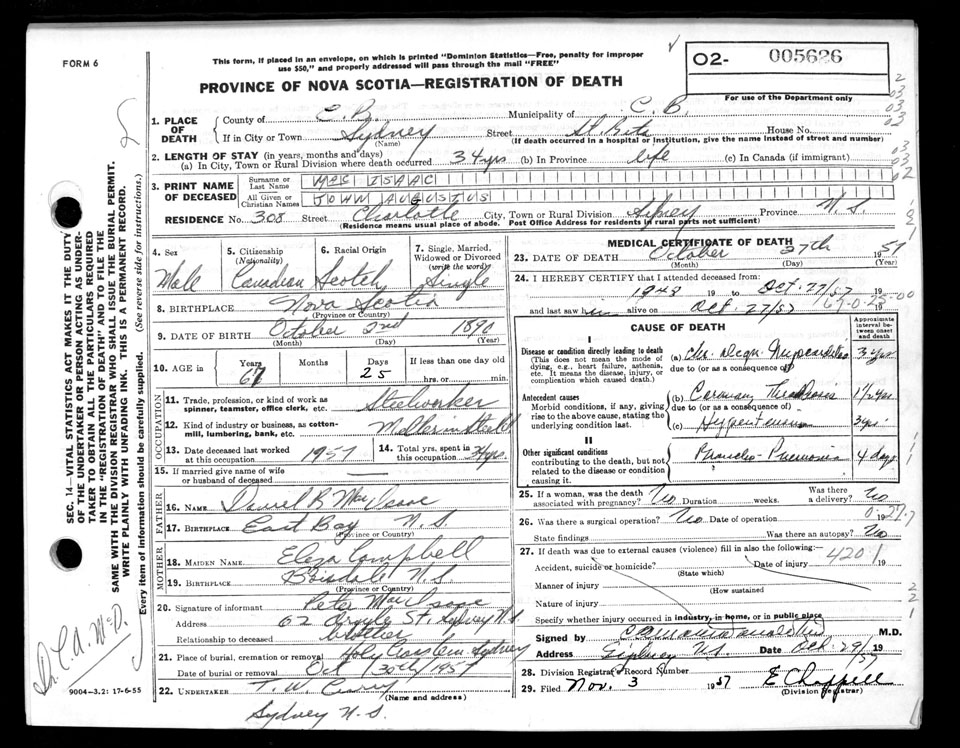 FORM 6
This form, if placed in an envelope, on which is printed "Dominion Statistics—Free, penalty for improper
use $50," and properly addressed will pass through the mail "FREE"
02- 005626
For use of the Department only
PROVINCE OF NOVA SCOTIA—REGISTRATION OF DEATH
1. PLACE OF DEATH
County of C. B. Municipality of C. B.
If in City or Town Sydney Street St. Rita House No.
(Name) (If death occurred in a hospital or institution, give the name instead of street and number)
2. LENGTH OF STAY (in years, months and days)
(a) In City, Town or Rural Division where death occurred 34 yrs (b) In Province life (c) In Canada (if immigrant)
3. PRINT NAME OF DECEASED
Surname or Last Name MAC ISAAC
All Given or Christian Names JOHN AUGUSTUS
RESIDENCE No. 308 Street Charlotte City, Town or Rural Division Sydney Province N. S.
(Residence means usual place of abode. Post Office Address for residents in rural parts not sufficient)
4. Sex
Male
5. Citizenship (Nationality)
Canadian
6. Racial Origin
Scotch
7. Single, Married, Widowed or Divorced (write the word)
Single
8. BIRTHPLACE Nova Scotia
(Province or Country)
9. DATE OF BIRTH October 2nd 1890
(Month) (Day) (Year)
10. AGE in Years Months Days If less than one day old
67 25 hrs. or min.
OCCUPATION
11. Trade, profession, or kind of work as spinner, teamster, office clerk, etc. Steelworker
12. Kind of industry or business, as cotton-mill, lumbering, bank, etc.
13. Date deceased last worked at this occupation 1957
14. Total yrs. spent in this occupation yrs.
15. If married give name of wife or husband of deceased
FATHER
16. NAME Daniel R MacIsaac
17. BIRTHPLACE East Bay N. S.
(Province or Country)
MOTHER
18. MAIDEN NAME Eliza Campbell
19. BIRTHPLACE Boisdale N. S.
(Province or Country)
20. Signature of informant Peter MacIsaac
Address 62 Argyle St. Sydney N. S.
Relationship to deceased brother
21. Place of burial, cremation or removal Holy Cross Cem Sydney
Date of burial or removal Oct 30th/1957
22. UNDERTAKER T. W. Curry
(Name and address)
Sydney N. S.
MEDICAL CERTIFICATE OF DEATH
23. DATE OF DEATH October 27th 1957
(Month) (Day) (Year)
24. I HEREBY CERTIFY that I attended deceased from:
1948 19 to Oct. 27/57 19
and last saw him alive on Oct. 27/57
CAUSE OF DEATH
Approximate interval between onset and death
I
Disease or condition directly leading to death
(This does not mean the mode of dying, e.g., heart failure, asthenia, etc. It means the disease, injury, or complication which caused death.)
(a) Chr. Degn. Myocarditis 3 yrs
due to (or as a consequence of)
Antecedent causes
Morbid conditions, if any, giving rise to the above cause, stating the underlying condition last.
(b) Coronary Thrombosis 1½ yrs
due to (or as a consequence of)
(c) Hypertension 3 yrs.
II
Other significant conditions
contributing to the death, but not related to the disease or condition causing it.
Broncho-Pneumonia 4 days
25. If a woman, was the death associated with pregnancy? No Duration weeks. Was there a delivery? No
26. Was there surgical operation? No Date of operation
State findings Was there an autopsy? No
27. If death was due to external causes (violence) fill in also the following:— 420.1
Accident, suicide or homicide? Date of injury 19
(State which)
Manner of injury
(How sustained)
Nature of injury
Specify whether injury occurred in industry, in home, or in public place
Signed by M.D.
Address Sydney N.S. Date Oct. 29/57 19
28. Division Registrar's Record Number
29. Filed Nov. 3 1957 E Chappell
(Division Registrar)
SEC. 14—VITAL STATISTICS ACT MAKES IT THE DUTY
OF THE UNDERTAKER OR PERSON ACTING AS UNDER-
TAKER TO OBTAIN ALL THE PARTICULARS REQUIRED
IN THE "REGISTRATION OF DEATH" AND TO FILE THE
SAME WITH THE DIVISION REGISTRAR WHO SHALL ISSUE THE BURIAL PERMIT.
WRITE PLAINLY WITH UNFADING INK. THIS IS A PERMANENT RECORD.
Every item of information should be carefully supplied. (See reverse side for instructions.)
Dr. C. A. McD.
9004-3.2: 17-6-55